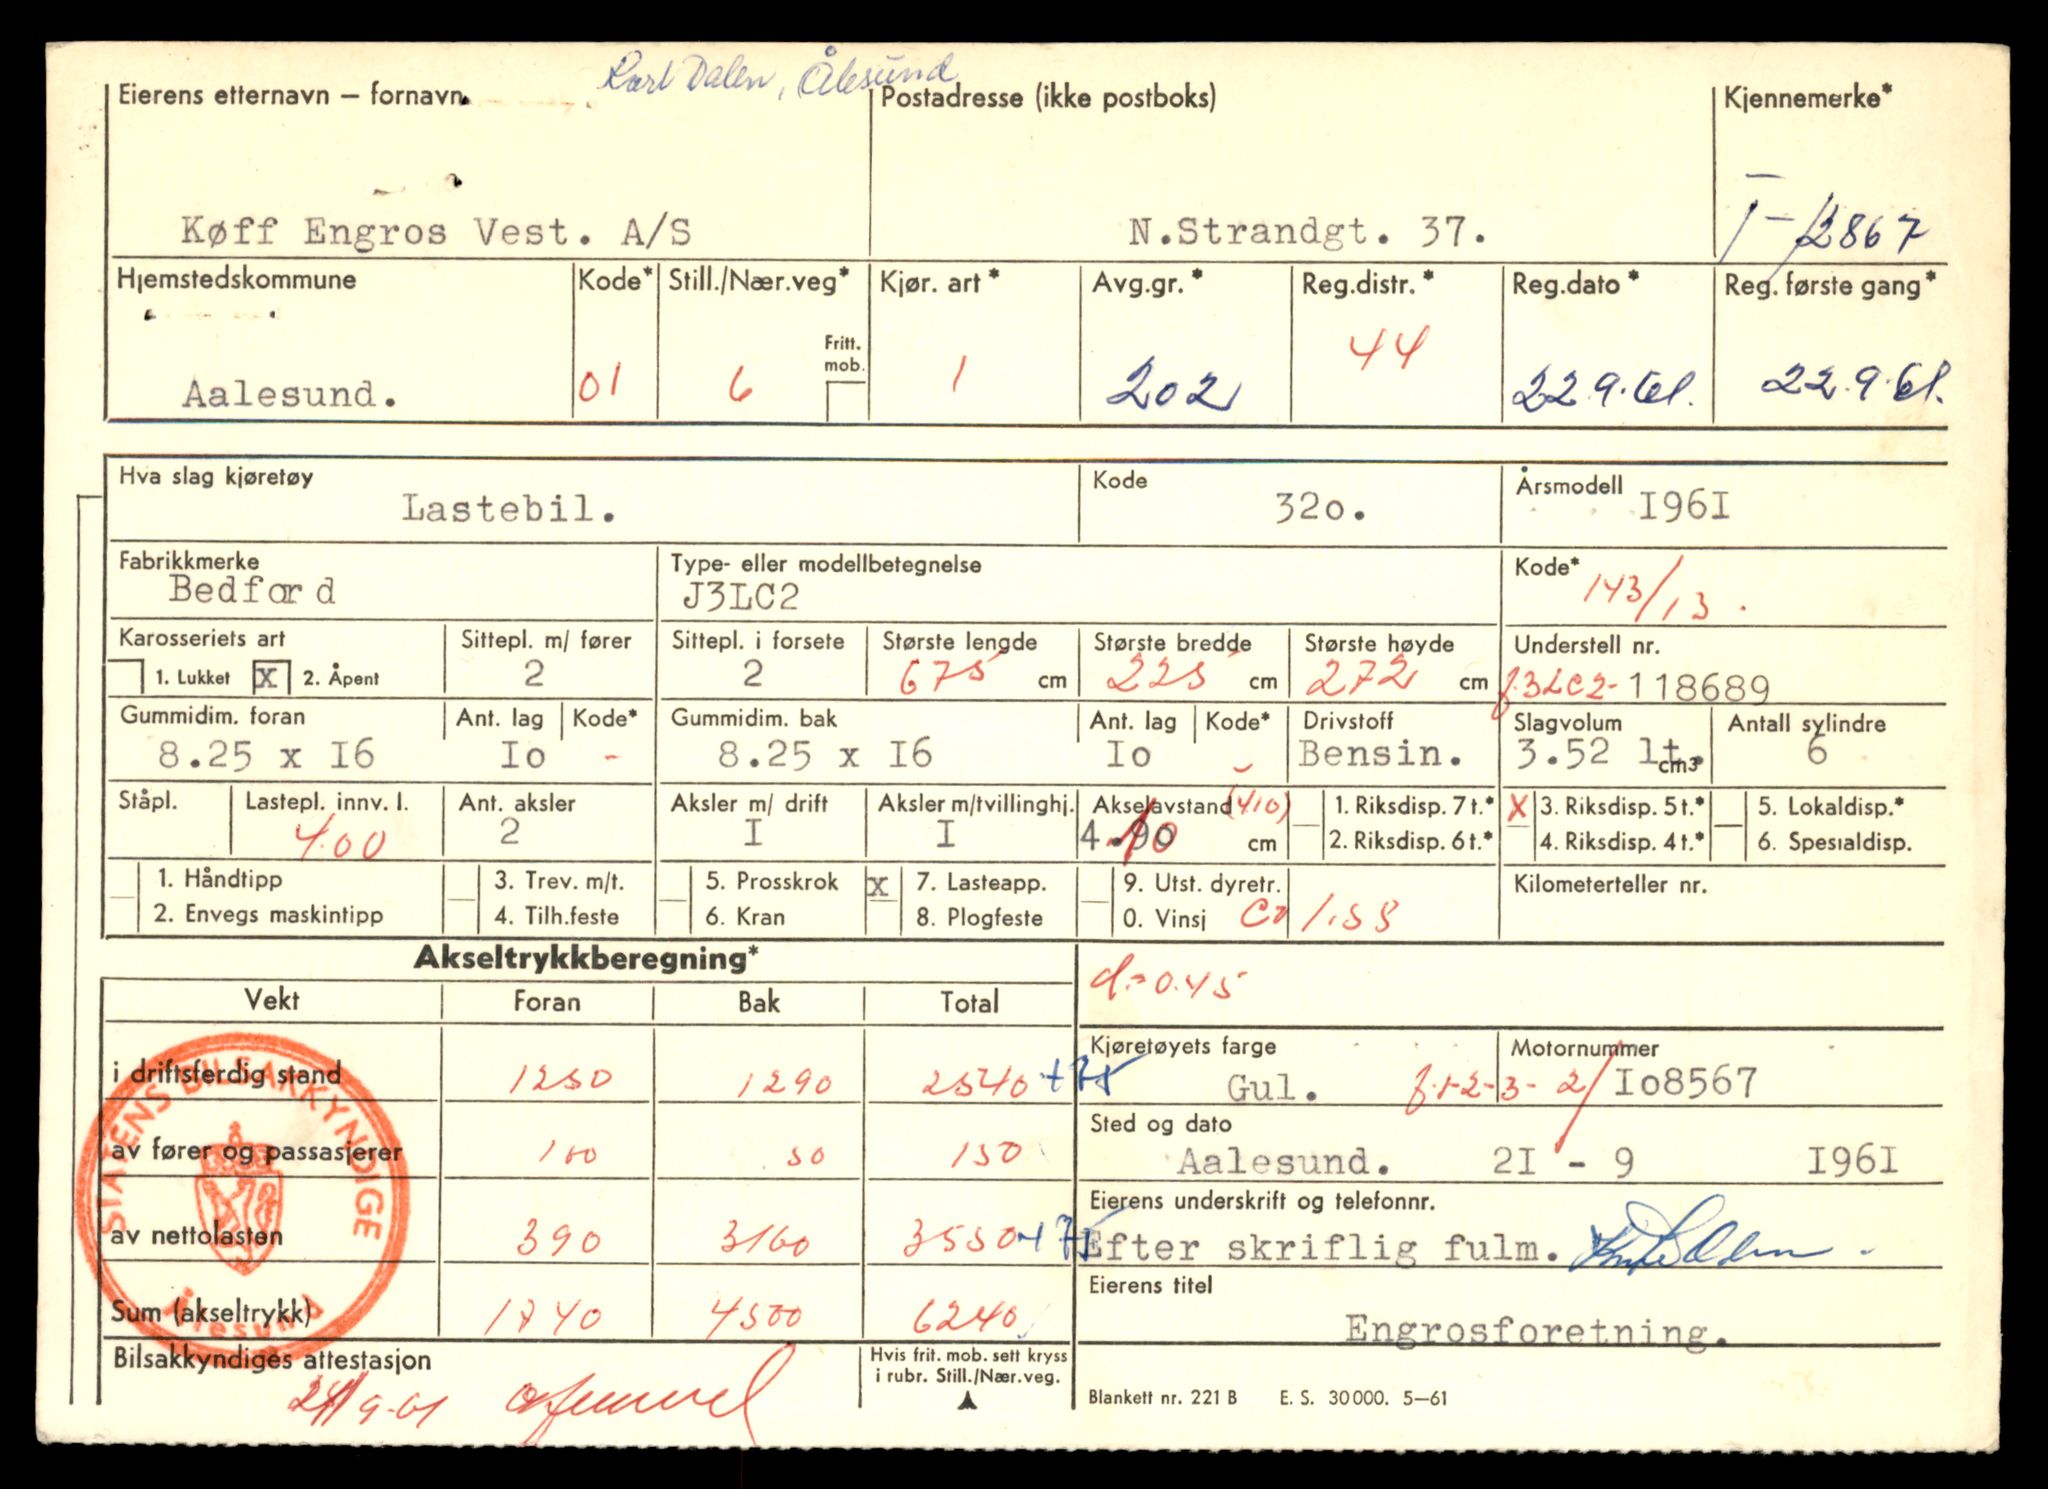 Karl Dalen, Ålesund
Eierens etternavn – fornavn Postadresse (ikke postboks) Kjennemerke*
Køff Engros Vest. A/S N.Strandgt. 37. T-12867
Hjemstedskommune Kode* Still./Nær.veg* Kjør. art* Avg.gr.* Reg.distr.* Reg.dato* Reg. første gang*
Fritt. mob.
Aalesund. 01 6 1 202 44 22.9.61. 22.9.61.
Hva slag kjøretøy Kode Årsmodell
Lastebil. 32o. I96I
Fabrikkmerke Type- eller modellbetegnelse Kode*
Bedford J3LC2 143/13.
Karosseriets art Sittepl. m/ fører Sittepl. i forsete Største lengde Største bredde Største høyde Understell nr.
1. Lukket X 2. Åpent 2 2 675 cm 225 cm 272 cm J3LC2-118689
Gummidim. foran Ant. lag Kode* Gummidim. bak Ant. lag Kode* Drivstoff Slagvolum Antall sylindre
8.25 x I6 Io - 8.25 x I6 Io - Bensin. 3.52 lt. cm3 6
Ståpl. Lastepl. innv. l. Ant. aksler Aksler m/ drift Aksler m/tvillinghj. Akselavstand (410) 1. Riksdisp. 7 t.* X 3. Riksdisp. 5 t.* 5. Lokaldisp.*
400 2 I I 4.90 10 cm 2. Riksdisp. 6 t.* 4. Riksdisp. 4 t.* 6. Spesialdisp.
1. Håndtipp 3. Trev. m/t. 5. Prosskrok x 7. Lasteapp. 9. Utst. dyretr. Kilometerteller nr.
2. Envegs maskintipp 4. Tilh.feste 6. Kran 8. Plogfeste 0. Vinsj
Akseltrykkberegning*
d=0.45
Vekt Foran Bak Total
Kjøretøyets farge Motornummer
i driftsferdig stand 1250 1290 2540 +75
Gul. J-1-2-3-2/Io8567
Sted og dato
av fører og passasjerer 100 50 150
Aalesund. 2I - 9 I96I
Eierens underskrift og telefonnr.
av nettolasten 390 3160 3550 +75
Efter skriflig fulm.
Eierens titel
Sum (akseltrykk) 1740 4500 6240
Engrosforetning.
Bilsakkyndiges attestasjon Hvis frit. mob. sett kryss
i rubr. Still./Nær.veg.
Blankett nr. 221 B E. S. 30 000. 5–61
STATENS BILSAKKYNDIGE
Ålesund